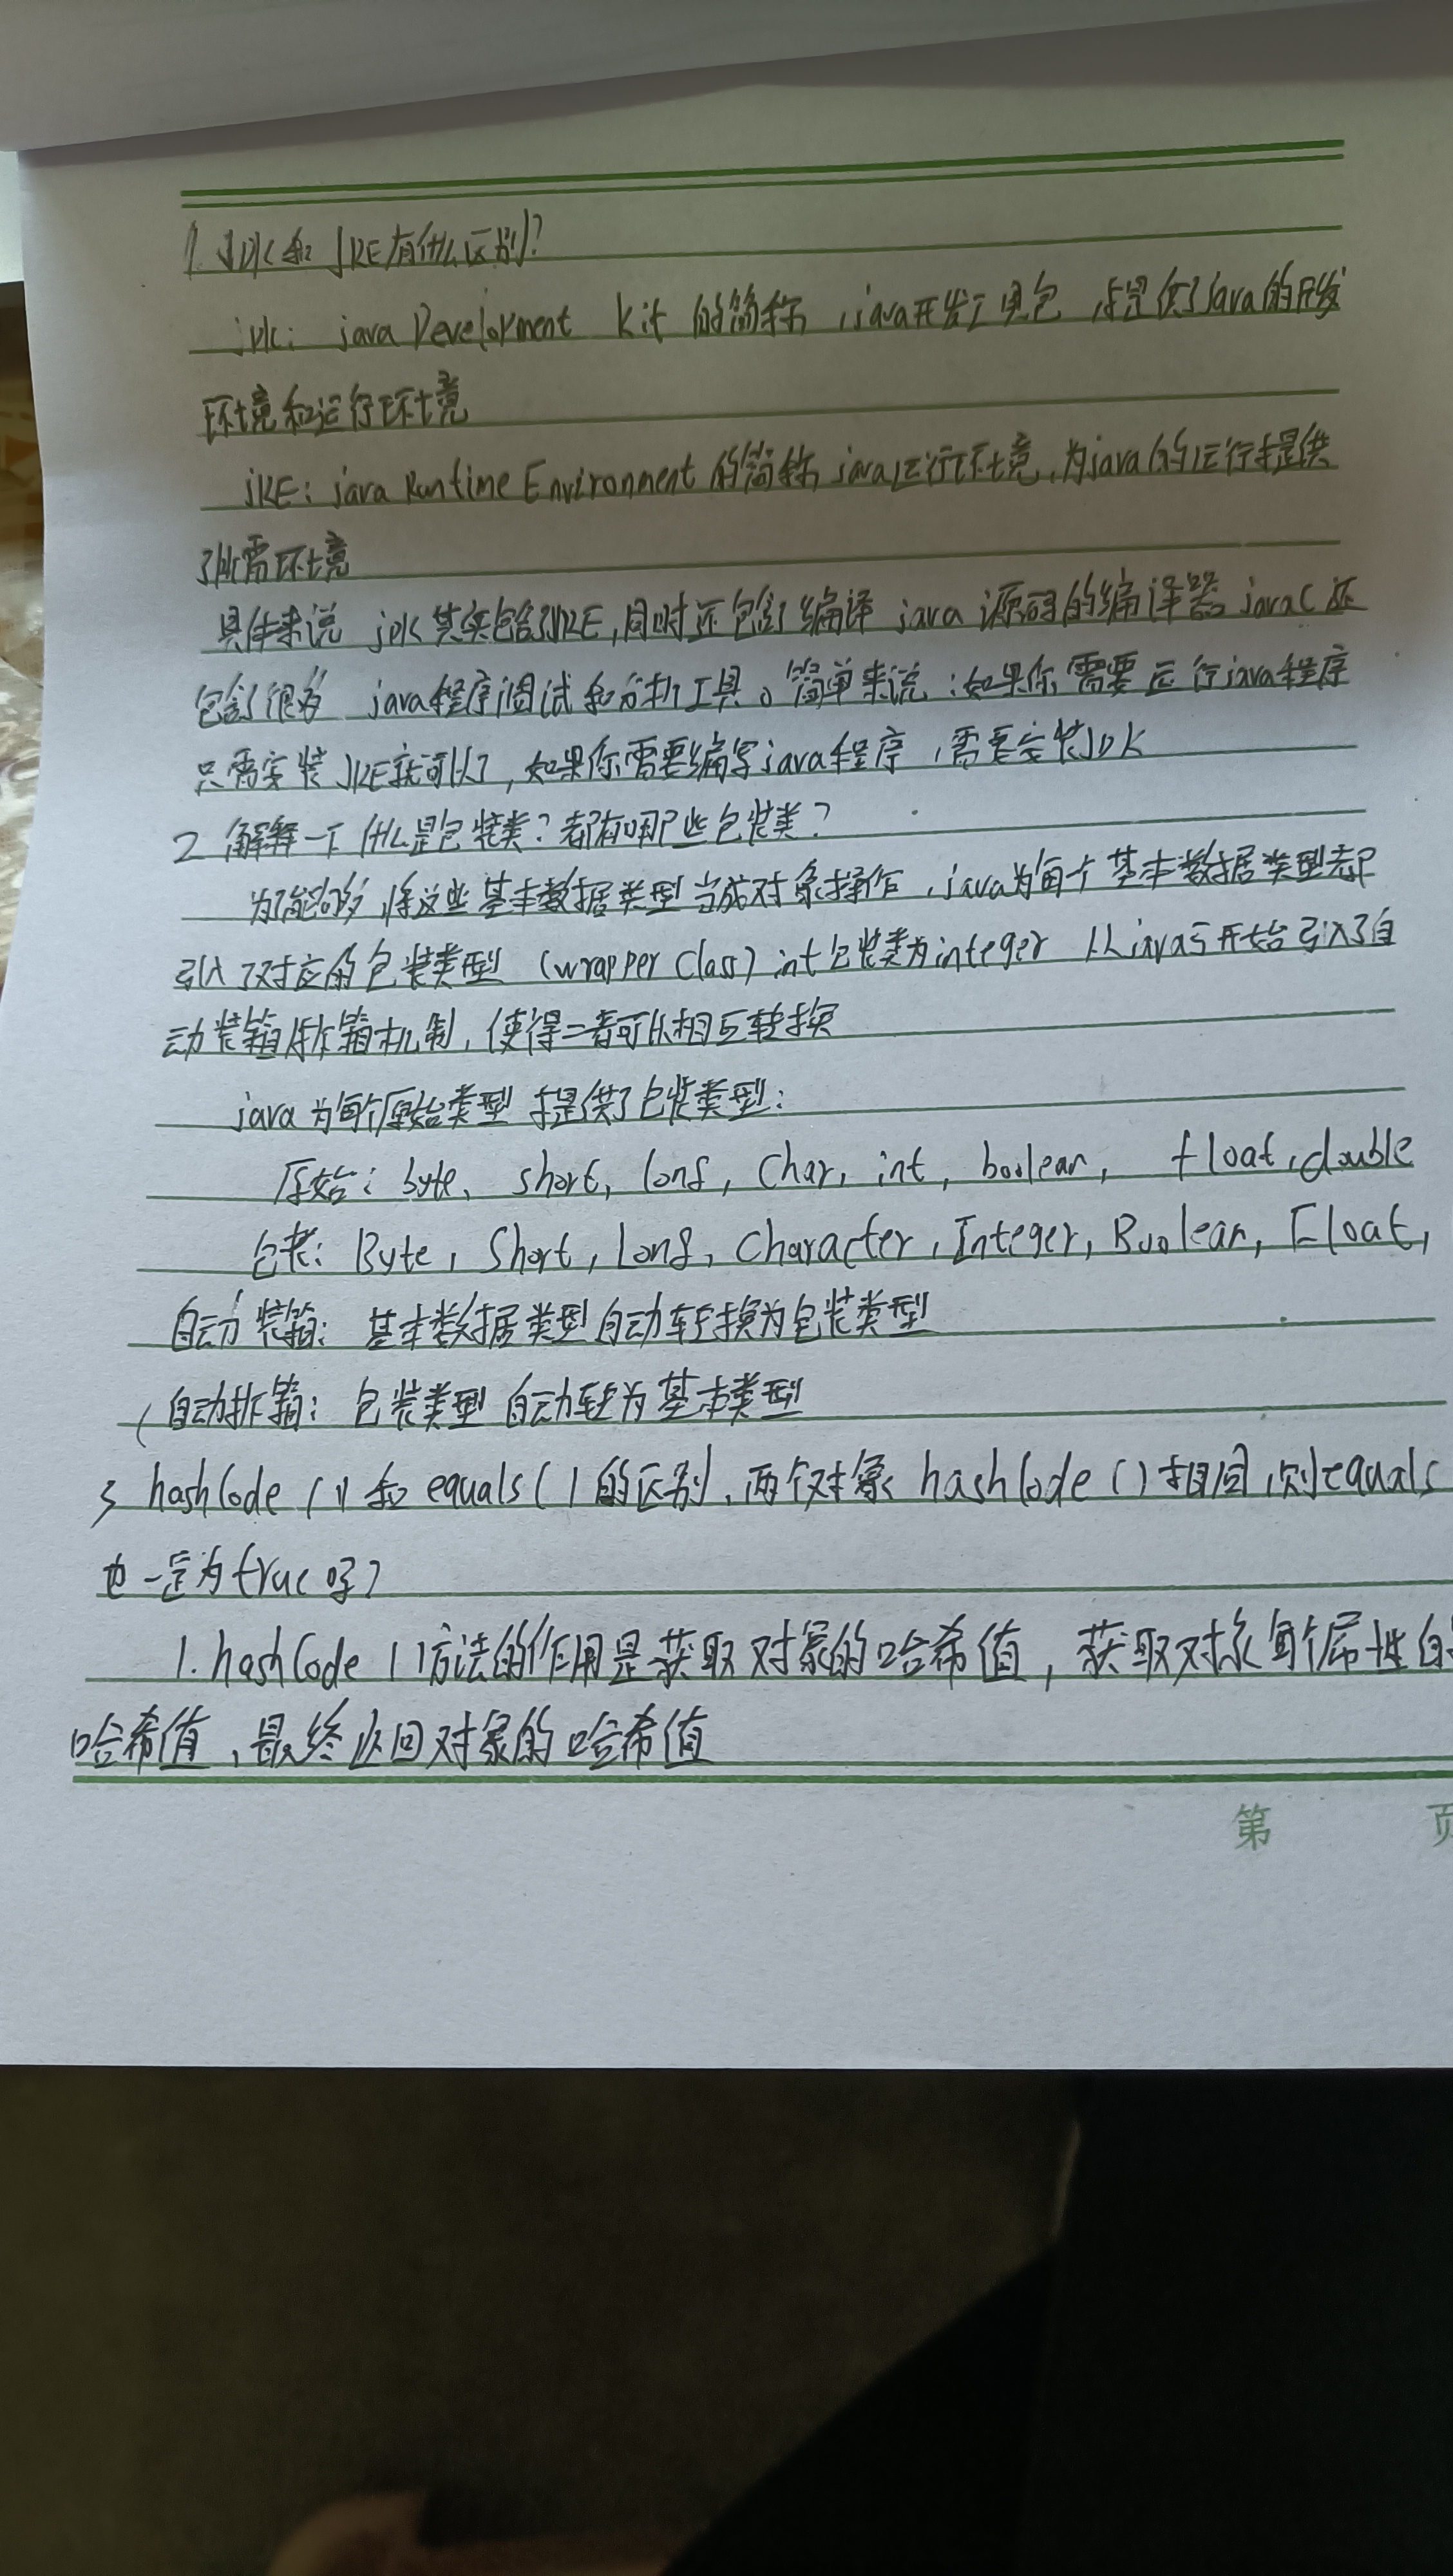 1. JDK和JRE有什么区别?
jDK: java Development Kit 的简称,java开发工具包,提供了java的开发
环境和运行环境
jRE: java Runtime Environment 的简称 java运行环境,为java的运行提供
了所需环境
具体来说 jDK其实包含了JRE,同时还包含了编译 java 源码的编译器 javac 还
包含了很多 java程序调试和分析工具。简单来说:如果你需要运行java程序
只需安装JRE就可以了,如果你需要编写java程序,需要安装JDK
2 解释一下什么是包装类?都有哪些包装类?
为了能够将这些基本数据类型当成对象操作,java为每个基本数据类型都
引入了对应的包装类型 (wrapper Class) int包装类为integer 从java5开始引入了自
动装箱/拆箱机制,使得二者可以相互转换
java为每个原始类型提供了包装类型:
原始: byte、short, long, Char, int, boolean, float, double
包装: Byte, Short, Long, Character, Integer, Boolean, Float,
自动装箱: 基本数据类型自动转换为包装类型
自动拆箱: 包装类型自动转为基本类型
3 hashCode()和equals()的区别,两个对象hashCode()相同,则equals
也一定为true吗?
1.hashCode()方法的作用是获取对象的哈希值,获取对象每个属性的
哈希值,最终返回对象的哈希值
第 页